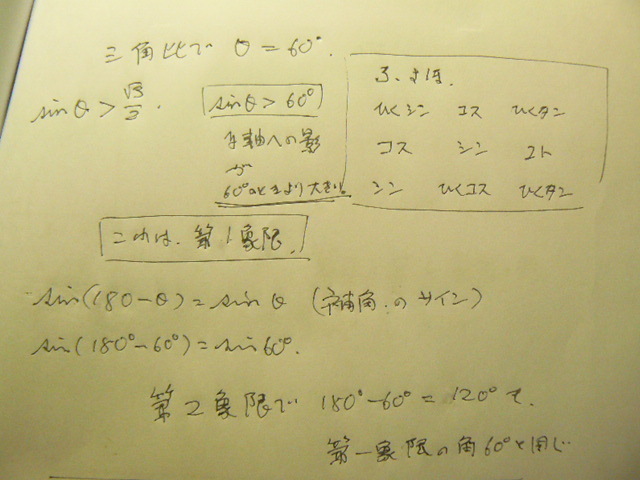 三角比で θ=60°.
sinθ > √3/2.
sinθ > 60°
y軸への影
が
60°のときより大きい。
ふ、よほ.
ひくシン コス ひくタン
コス シン コト
シン ひくコス ひくタン
これは、第1象限.
sin(180-θ) = sinθ (補角のサイン)
sin(180°-60°) = sin60°.
第2象限で 180°-60° = 120°も.
第一象限の角60°と同じ